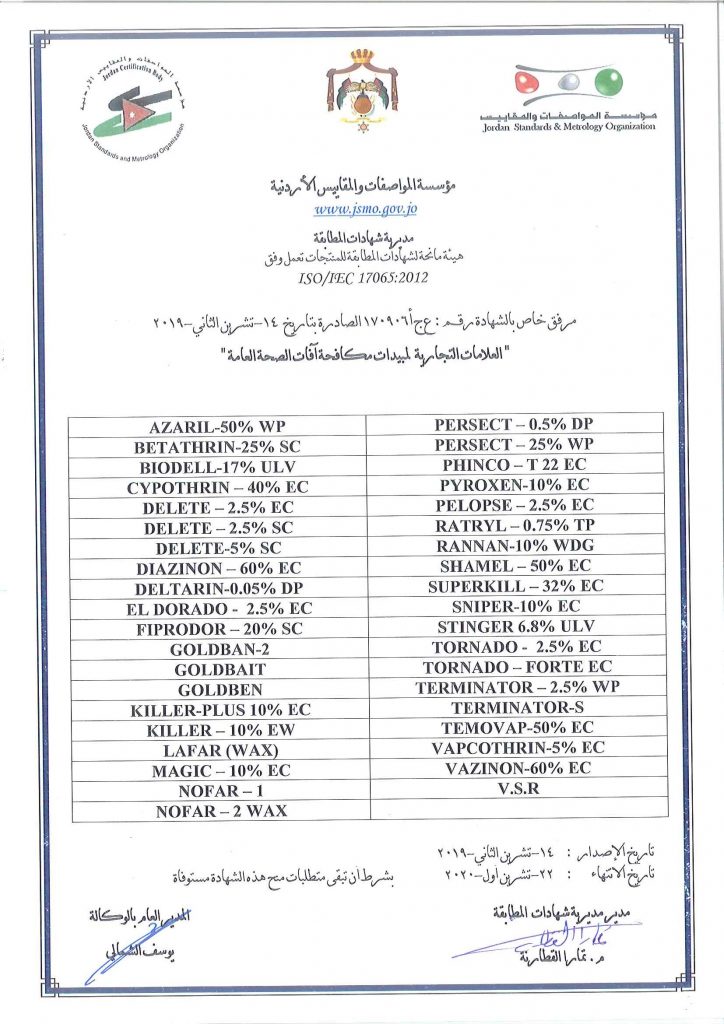 مؤسسة المواصفات والمقاييس الأردنية
Jordan Certification Body
Jordan Standards and Metrology Organization
مؤسسة المواصفات والمقاييس
Jordan Standards & Metrology Organization
مؤسسة المواصفات والمقاييس الأردنية
www.jsmo.gov.jo
مديرية شهادات المطابقة
هيئة مانحة لشهادات المطابقة للمنتجات تعمل وفق
ISO/IEC 17065:2012
مرفق خاص بالشهادة رقم : ع ج أ ١٧٠٩٠٦ الصادرة بتاريخ ١٤-تشرين الثاني-٢٠١٩
"العلامات التجارية لمبيدات مكافحة آفات الصحة العامة"
AZARIL-50% WP PERSECT – 0.5% DP
BETATHRIN-25% SC PERSECT – 25% WP
BIODELL-17% ULV PHINCO – T 22 EC
CYPOTHRIN – 40% EC PYROXEN-10% EC
DELETE – 2.5% EC PELOPSE – 2.5% EC
DELETE – 2.5% SC RATRYL – 0.75% TP
DELETE-5% SC RANNAN-10% WDG
DIAZINON – 60% EC SHAMEL – 50% EC
DELTARIN-0.05% DP SUPERKILL – 32% EC
EL DORADO - 2.5% EC SNIPER-10% EC
FIPRODOR – 20% SC STINGER 6.8% ULV
GOLDBAN-2 TORNADO - 2.5% EC
GOLDBAIT TORNADO – FORTE EC
GOLDBEN TERMINATOR – 2.5% WP
KILLER-PLUS 10% EC TERMINATOR-S
KILLER – 10% EW TEMOVAP-50% EC
LAFAR (WAX) VAPCOTHRIN-5% EC
MAGIC – 10% EC VAZINON-60% EC
NOFAR – 1 V.S.R
NOFAR – 2 WAX
تاريخ الإصدار : ١٤-تشرين الثاني-٢٠١٩
تاريخ الانتهاء : ٢٢-تشرين أول-٢٠٢٠ بشرط أن تبقى متطلبات منح هذه الشهادة مستوفاة
مدير مديرية شهادات المطابقة المدير العام بالوكالة
م. تمارا القطارنة يوسف الشمالي